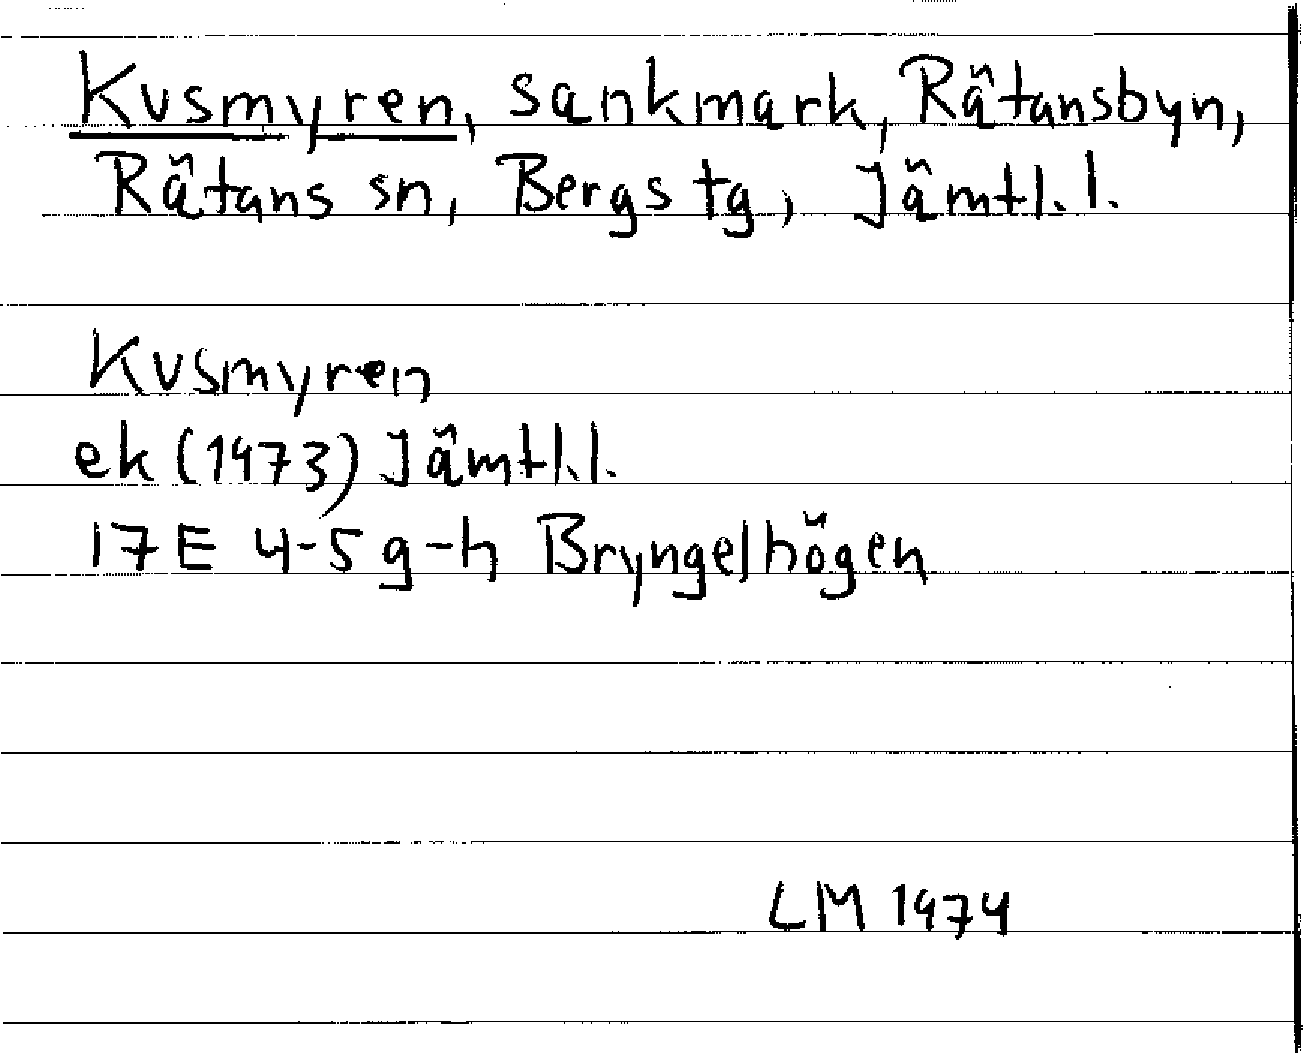 Kusmyren, sankmark, Rätansbyn,
Rätans sn, Bergs tg, Jämtl. l.
Kusmyren
ek (1973) Jämtl. l.
17E 4-5 g-h Bryngelhögen
LM 1974